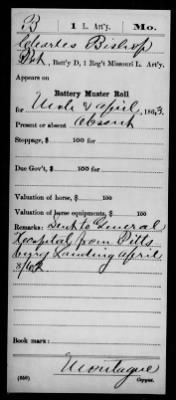 B | 1 L. Art'y. | Mo.
Charles Bishop
Pvt, Batt'y D, 1 Reg't Missouri L. Art'y.
Appears on
Battery Muster Roll
for Mch & April, 186
Present or absent absent
Stoppage, $ 100 for
Due Gov't, $ 100 for
Valuation of horse, $ 100
Valuation of horse equipments, $ 100
Remarks: Sent to General
Hospital from Pitts
burg Landing April
Book mark:
Montague
(850) Copyist.